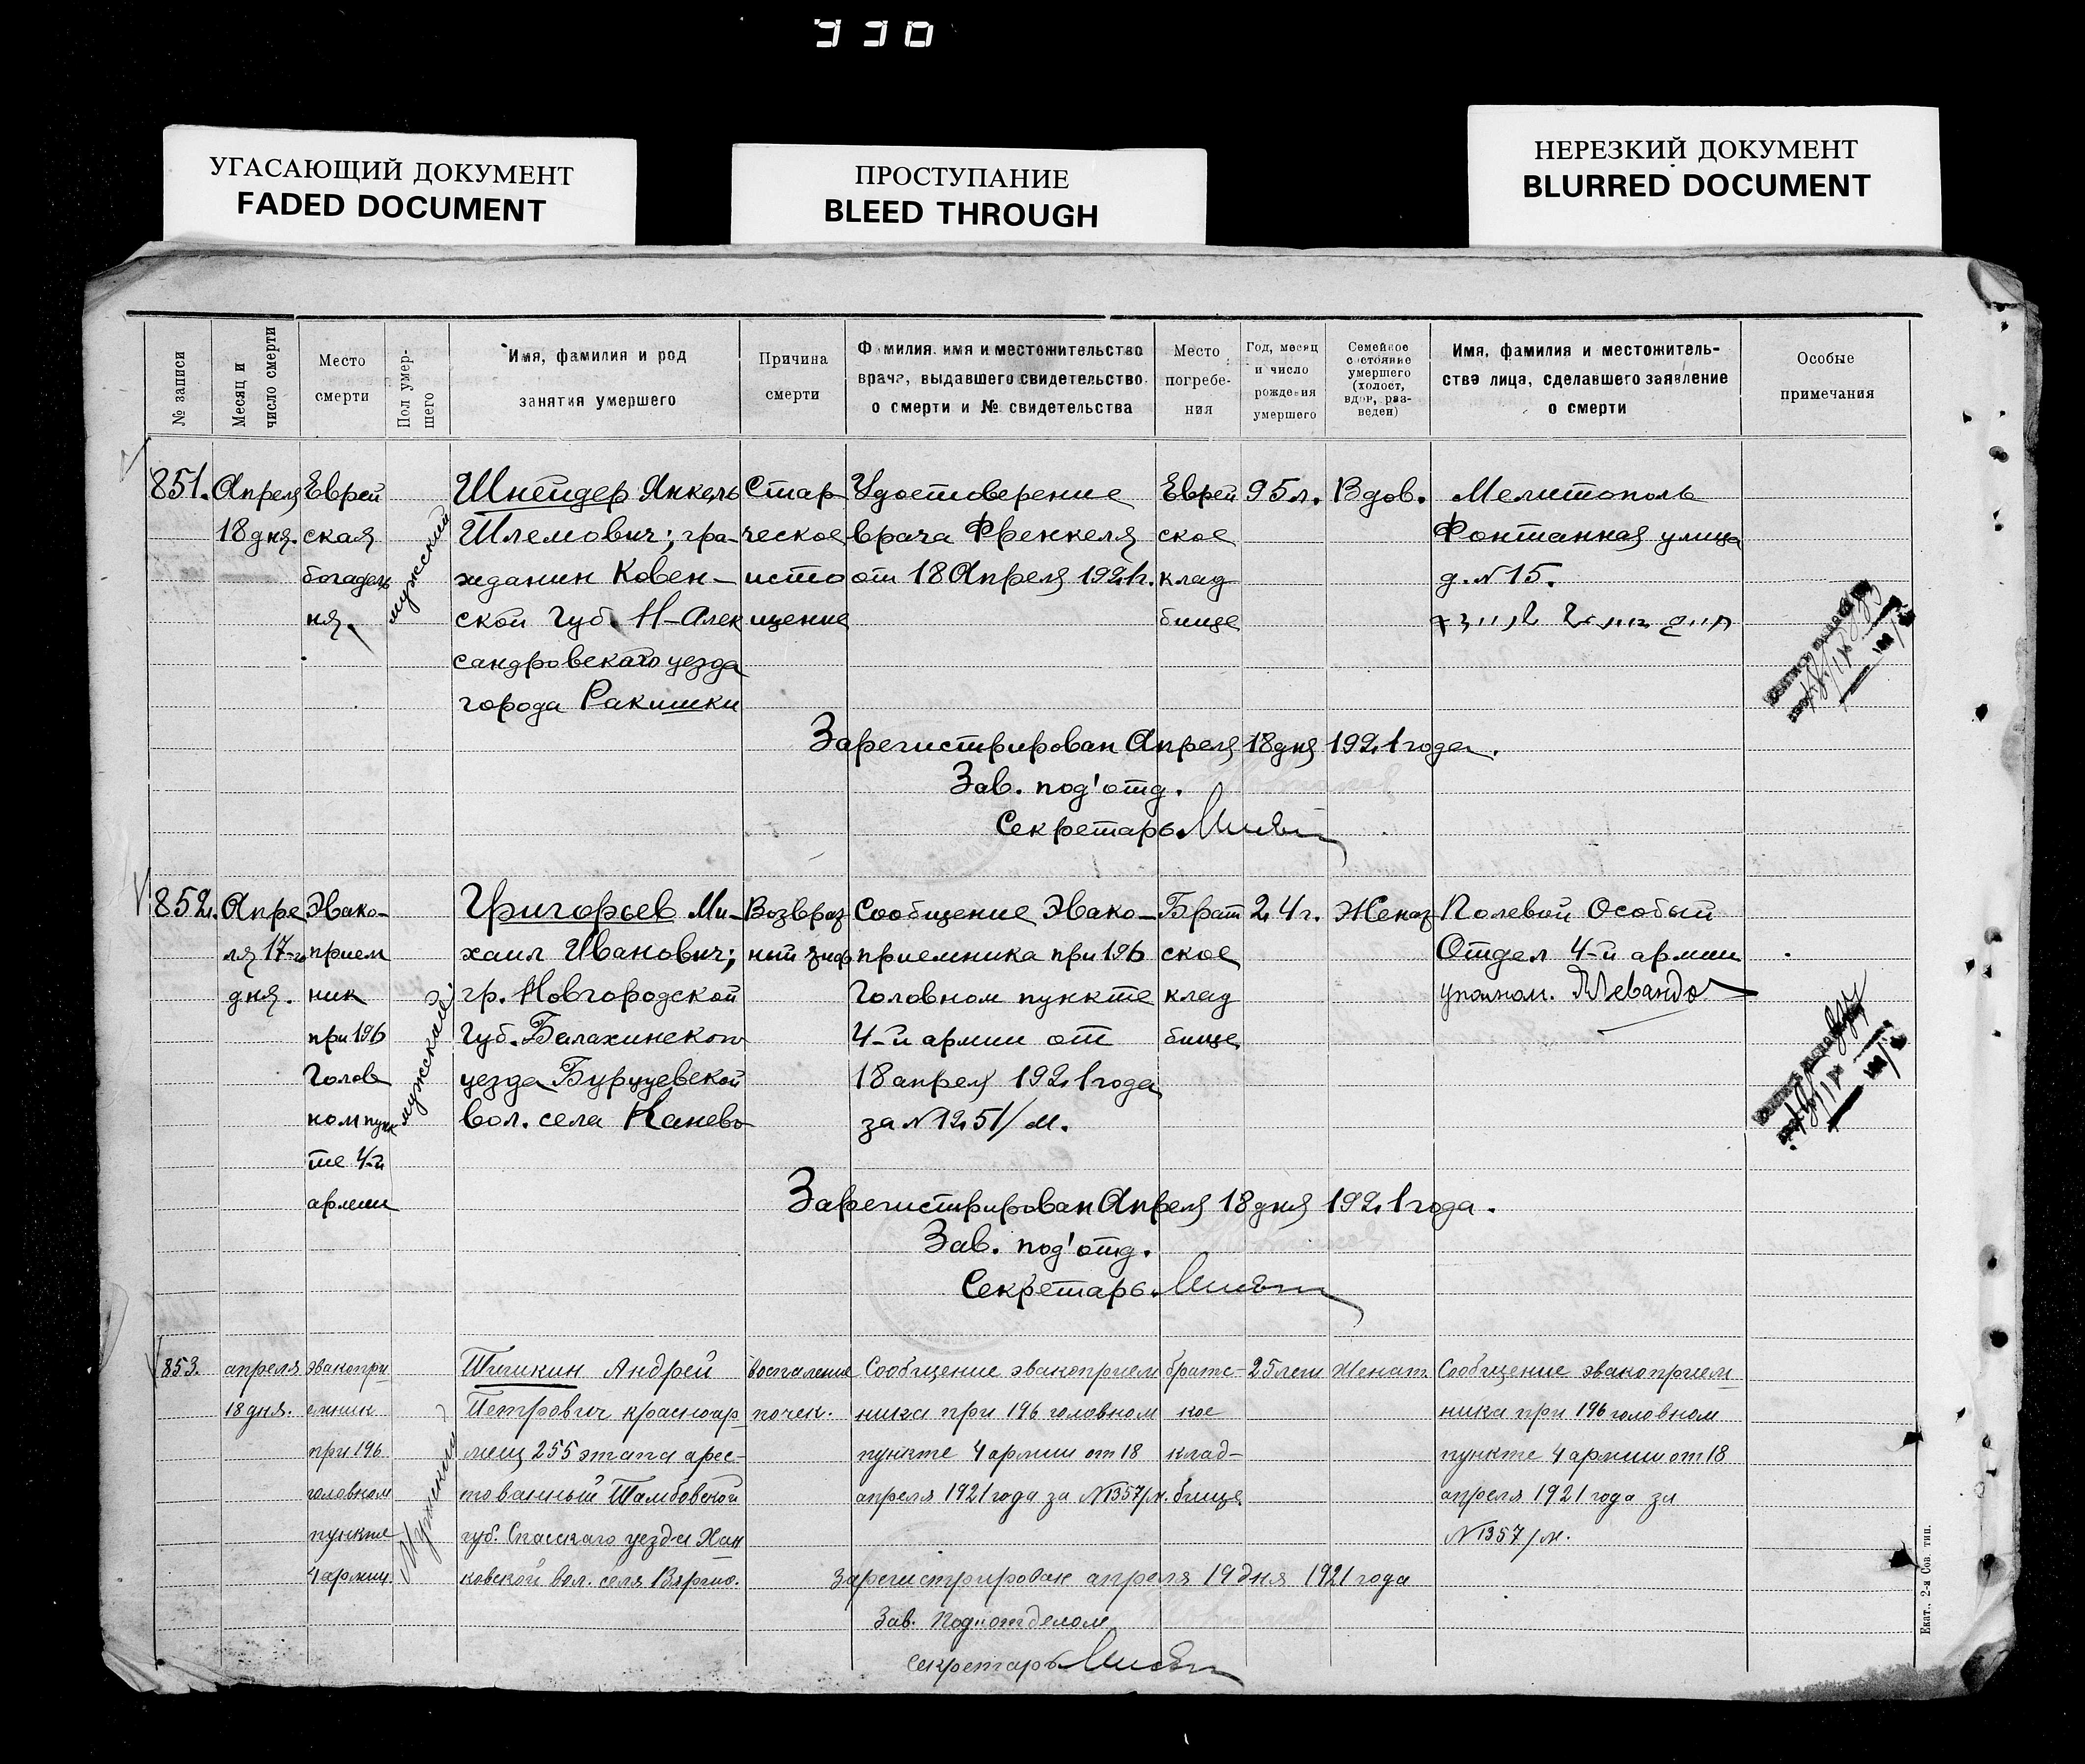 930
УГАСАЮЩИЙ ДОКУМЕНТ
FADED DOCUMENT
ПРОСТУПАНИЕ
BLEED THROUGH
НЕРЕЗКИЙ ДОКУМЕНТ
BLURRED DOCUMENT
№ записи
Месяц и
число смерти
Место
смерти
Пол умер-
шего
Имя, фамилия и род
занятия умершего
Причина
смерти
Фамилия, имя и местожительство
врача, выдавшего свидетельство
о смерти и № свидетельства
Место
погребе-
ния
Год, месяц
и число
рождения
умершего
Семейное
состояние
умершего
(холост,
вдов, раз-
веден)
Имя, фамилия и местожитель-
ства лица, сделавшего заявление
о смерти
Особые
примечания
851.
Апреля
18 дня.
Еврей
ская
богадель
ня.
мужский
Шнейдер Янкель
Шлемович; гра-
жданин Ковен-
ской Губ. Н-Алек
сандровскаго уезда
города Ракишки
Стар
ческое
исто
щение
Удостоверение
врача Френкеля
от 18 Апреля 1921г.
Еврей
ское
клад
бище
95л.
Вдов.
Мелитополь
Фонтанная улица
д. № 15.
Зарегистрирован Апреля 18 дня 1921 года.
Зав. под'отд.
Секретарь
852.
Апре
ля 17-го
дня.
Эвако-
прием
ник
при 196
Голов
ном пунк
те 4-й
армии
мужский
Григорьев Ми-
хаил Иванович;
гр. Новгородской
Губ. Балахинского
уезда Бурцевской
вол. села Канево
Возвраз
ный тиф
Сообщение Эвако-
приемника при 196
Головном пункте
4-й армии от
18 апреля 1921 года
за № 1251/м.
Брат
ское
клад
бище
24г.
Женат
Полевой Особый
Отдел 4-й армии
уполном.
Зарегистрирован Апреля 18 дня 1921 года.
Зав. под'отд.
Секретарь
853.
апреля
18 дня.
эвакопри
емник
при 196
головном
пункте
4 армии
Мужский
Шишкин Андрей
Петрович красноар
меец 255 этапа арес-
тованный Тамбовской
губ. Спасскаго уезда Хан
ковской вол. села Вяргио.
Воспаление
почек.
Сообщение эвакоприем
ника при 196 головном
пункте 4 армии от 18
апреля 1921 года за № 1357/м.
братс-
кое
клад-
бище
25 лет
Женат
Сообщение эвакоприем
ника при 196 головном
пункте 4 армии от 18
апреля 1921 года за
№ 1357/м.
Зарегистрирован апреля 19 дня 1921 года
Зав. Подотделом
Секретарь
Екат., 2-я Сов. тип.